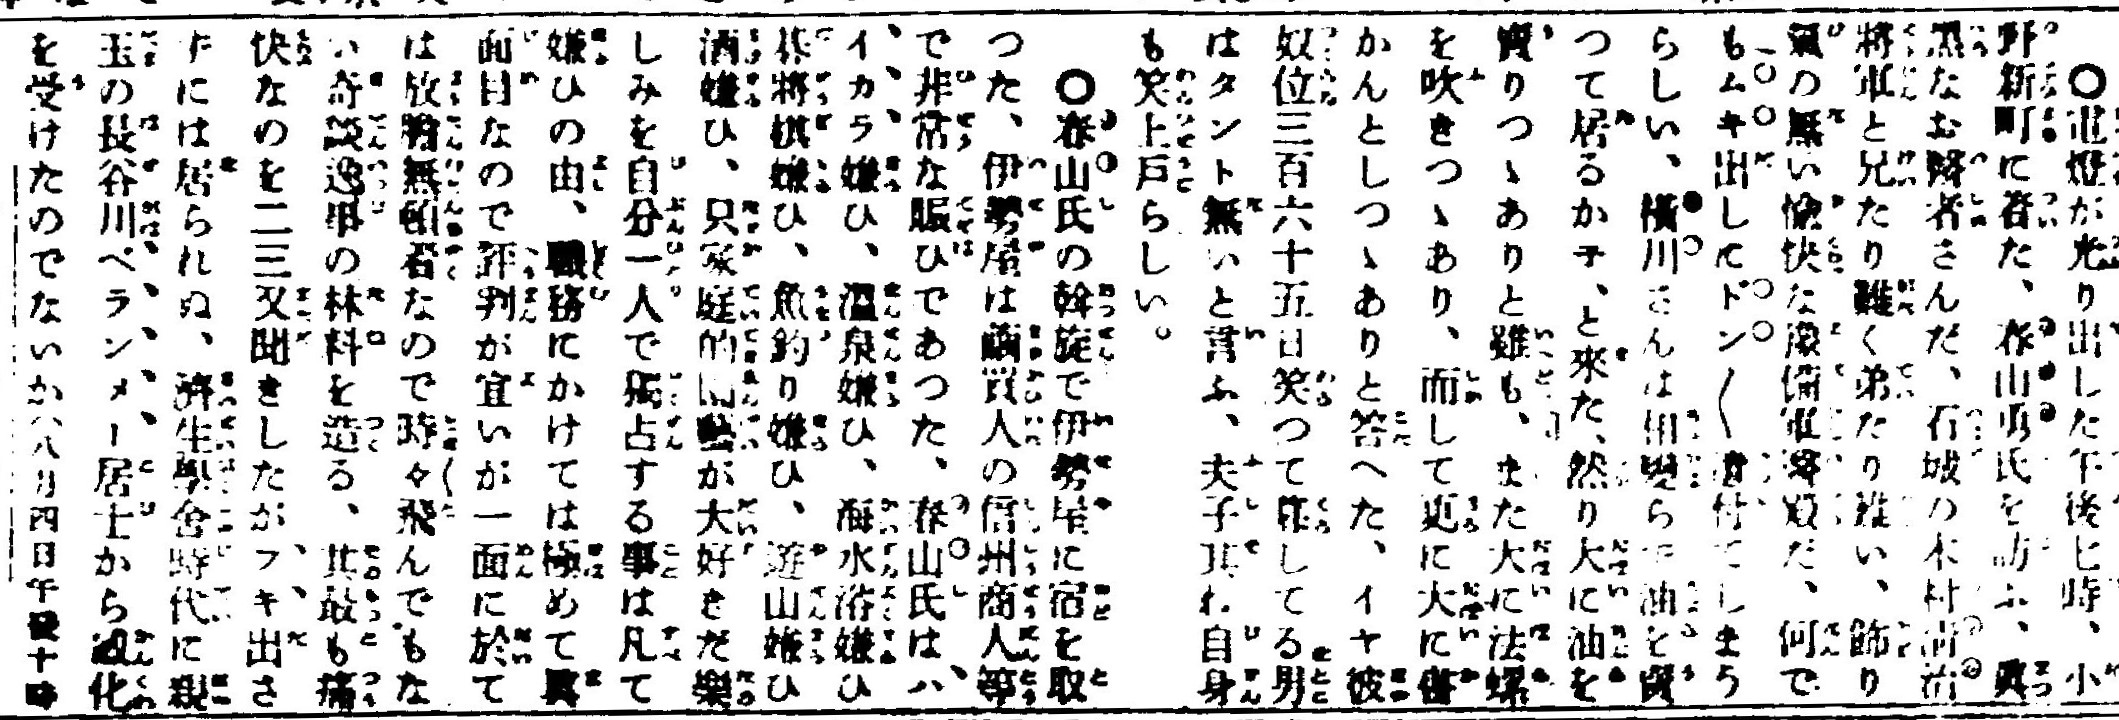 〇電燈が光り出した午後七時、小
野新町に着た、春山勇氏を訪ふ、眞
黒なお醫者さんだ、石城の木村淸治
將軍と兄たり難く弟たり難い、飾り
氣の無い愉快な豫備軍醫殿だ、何で
もムキ出してドン〱片付てしまう
らしい、橫川さんは相變らず油を賣
つて居るか子、と來た、然り大に油を
賣りつゝありと雖も、また大に法螺
を吹きつゝあり、而して更に大に書
かんとしつゝありと答へた、イヤ彼
奴位三百六十五日笑つて暮してる男
はタント無いと言ふ、夫子其れ自身
も笑上戶らしい。
〇春山氏の斡旋で伊勢屋に宿を取
つた、伊勢屋は繭買人の信州商人等
で非常な賑ひであつた、春山氏は、ハ
イカラ嫌ひ、溫泉嫌ひ、海水浴嫌ひ
碁將棋嫌ひ、魚釣り嫌ひ、遊山嫌ひ
酒嫌ひ、只家庭的園藝が大好きだ樂
しみを自分一人で獨占する事は凡て
嫌ひの由、職務にかけては極めて眞
面目なので評判が宜いが一面に於て
は放膽無頓着なので時々飛んでもな
い奇談逸事の材料を造る、其最も痛
快なのを二三又聞きしたがフキ出さ
ずには居られぬ、濟生學舍時代に親
玉の長谷川ベランメー居士から感化
を受けたのでないか（八月四日午後十時